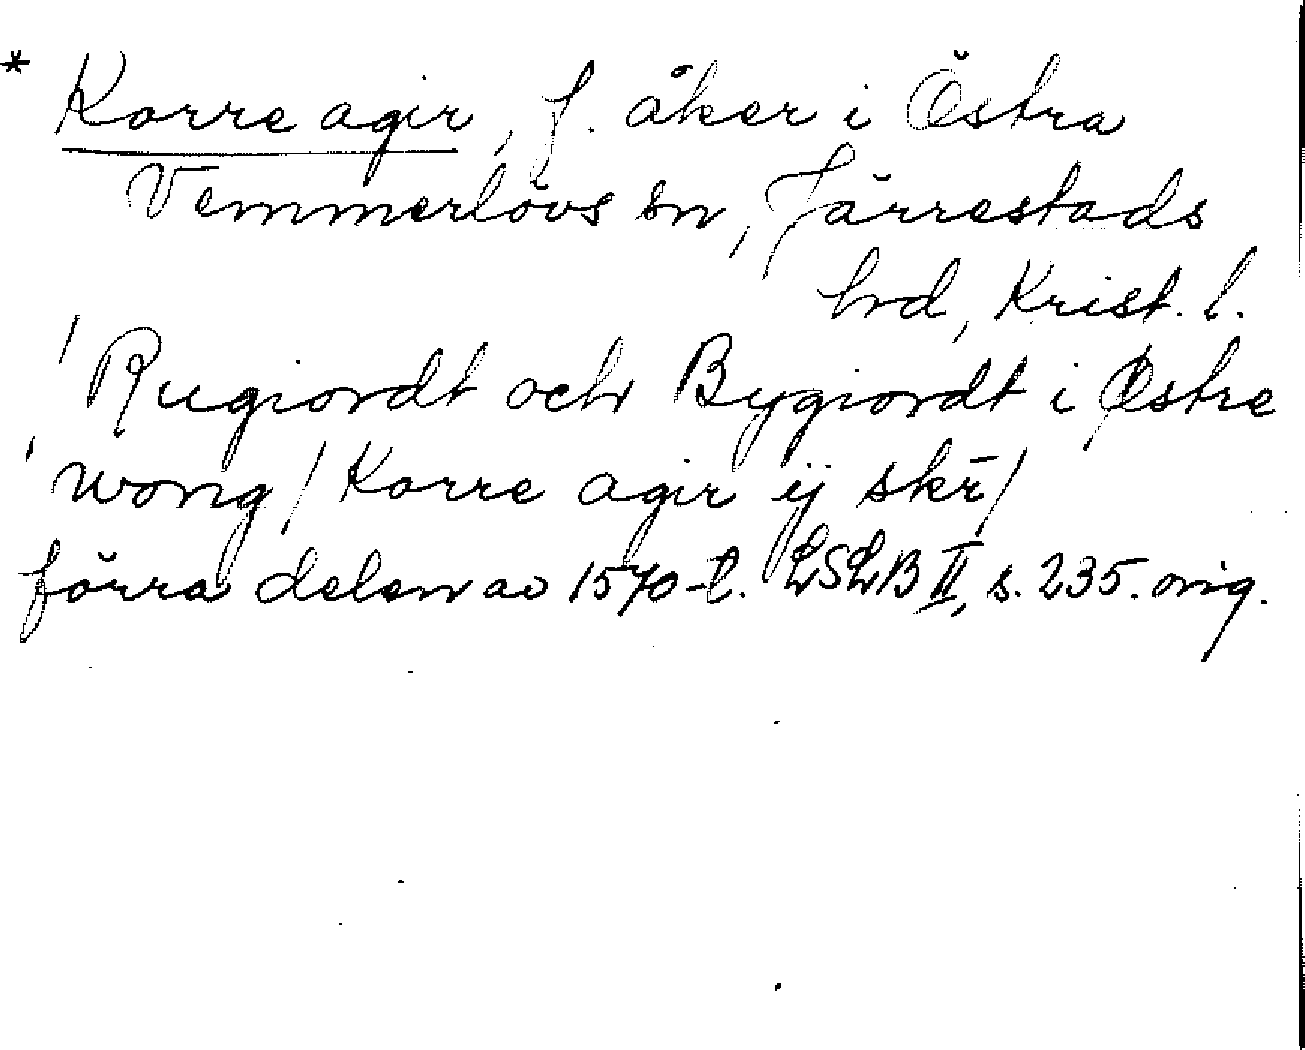 * Korre agir, f. åker i Östra
Vemmerlövs sn, Järrestads
hd, Krist. l.
'Rugiordt och Bygiordt i Østre
'wong / Korre agir ij skr̄ /
förra delen av 1570-t. LSLB II, s. 235. orig.